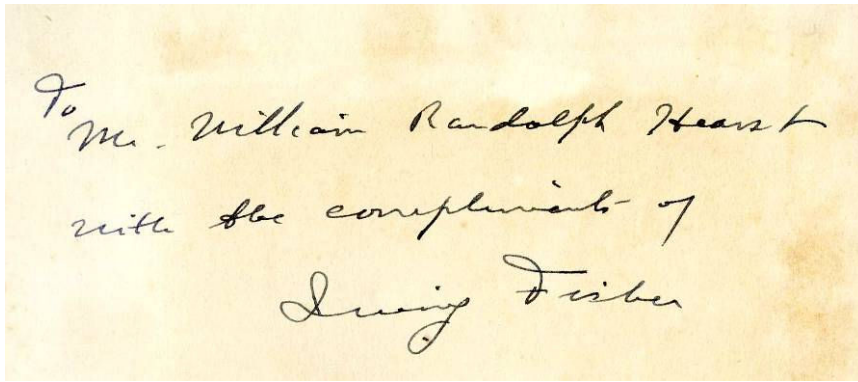 To
Mr. William Randolph Hearst
with the compliments of
Irving Fisher